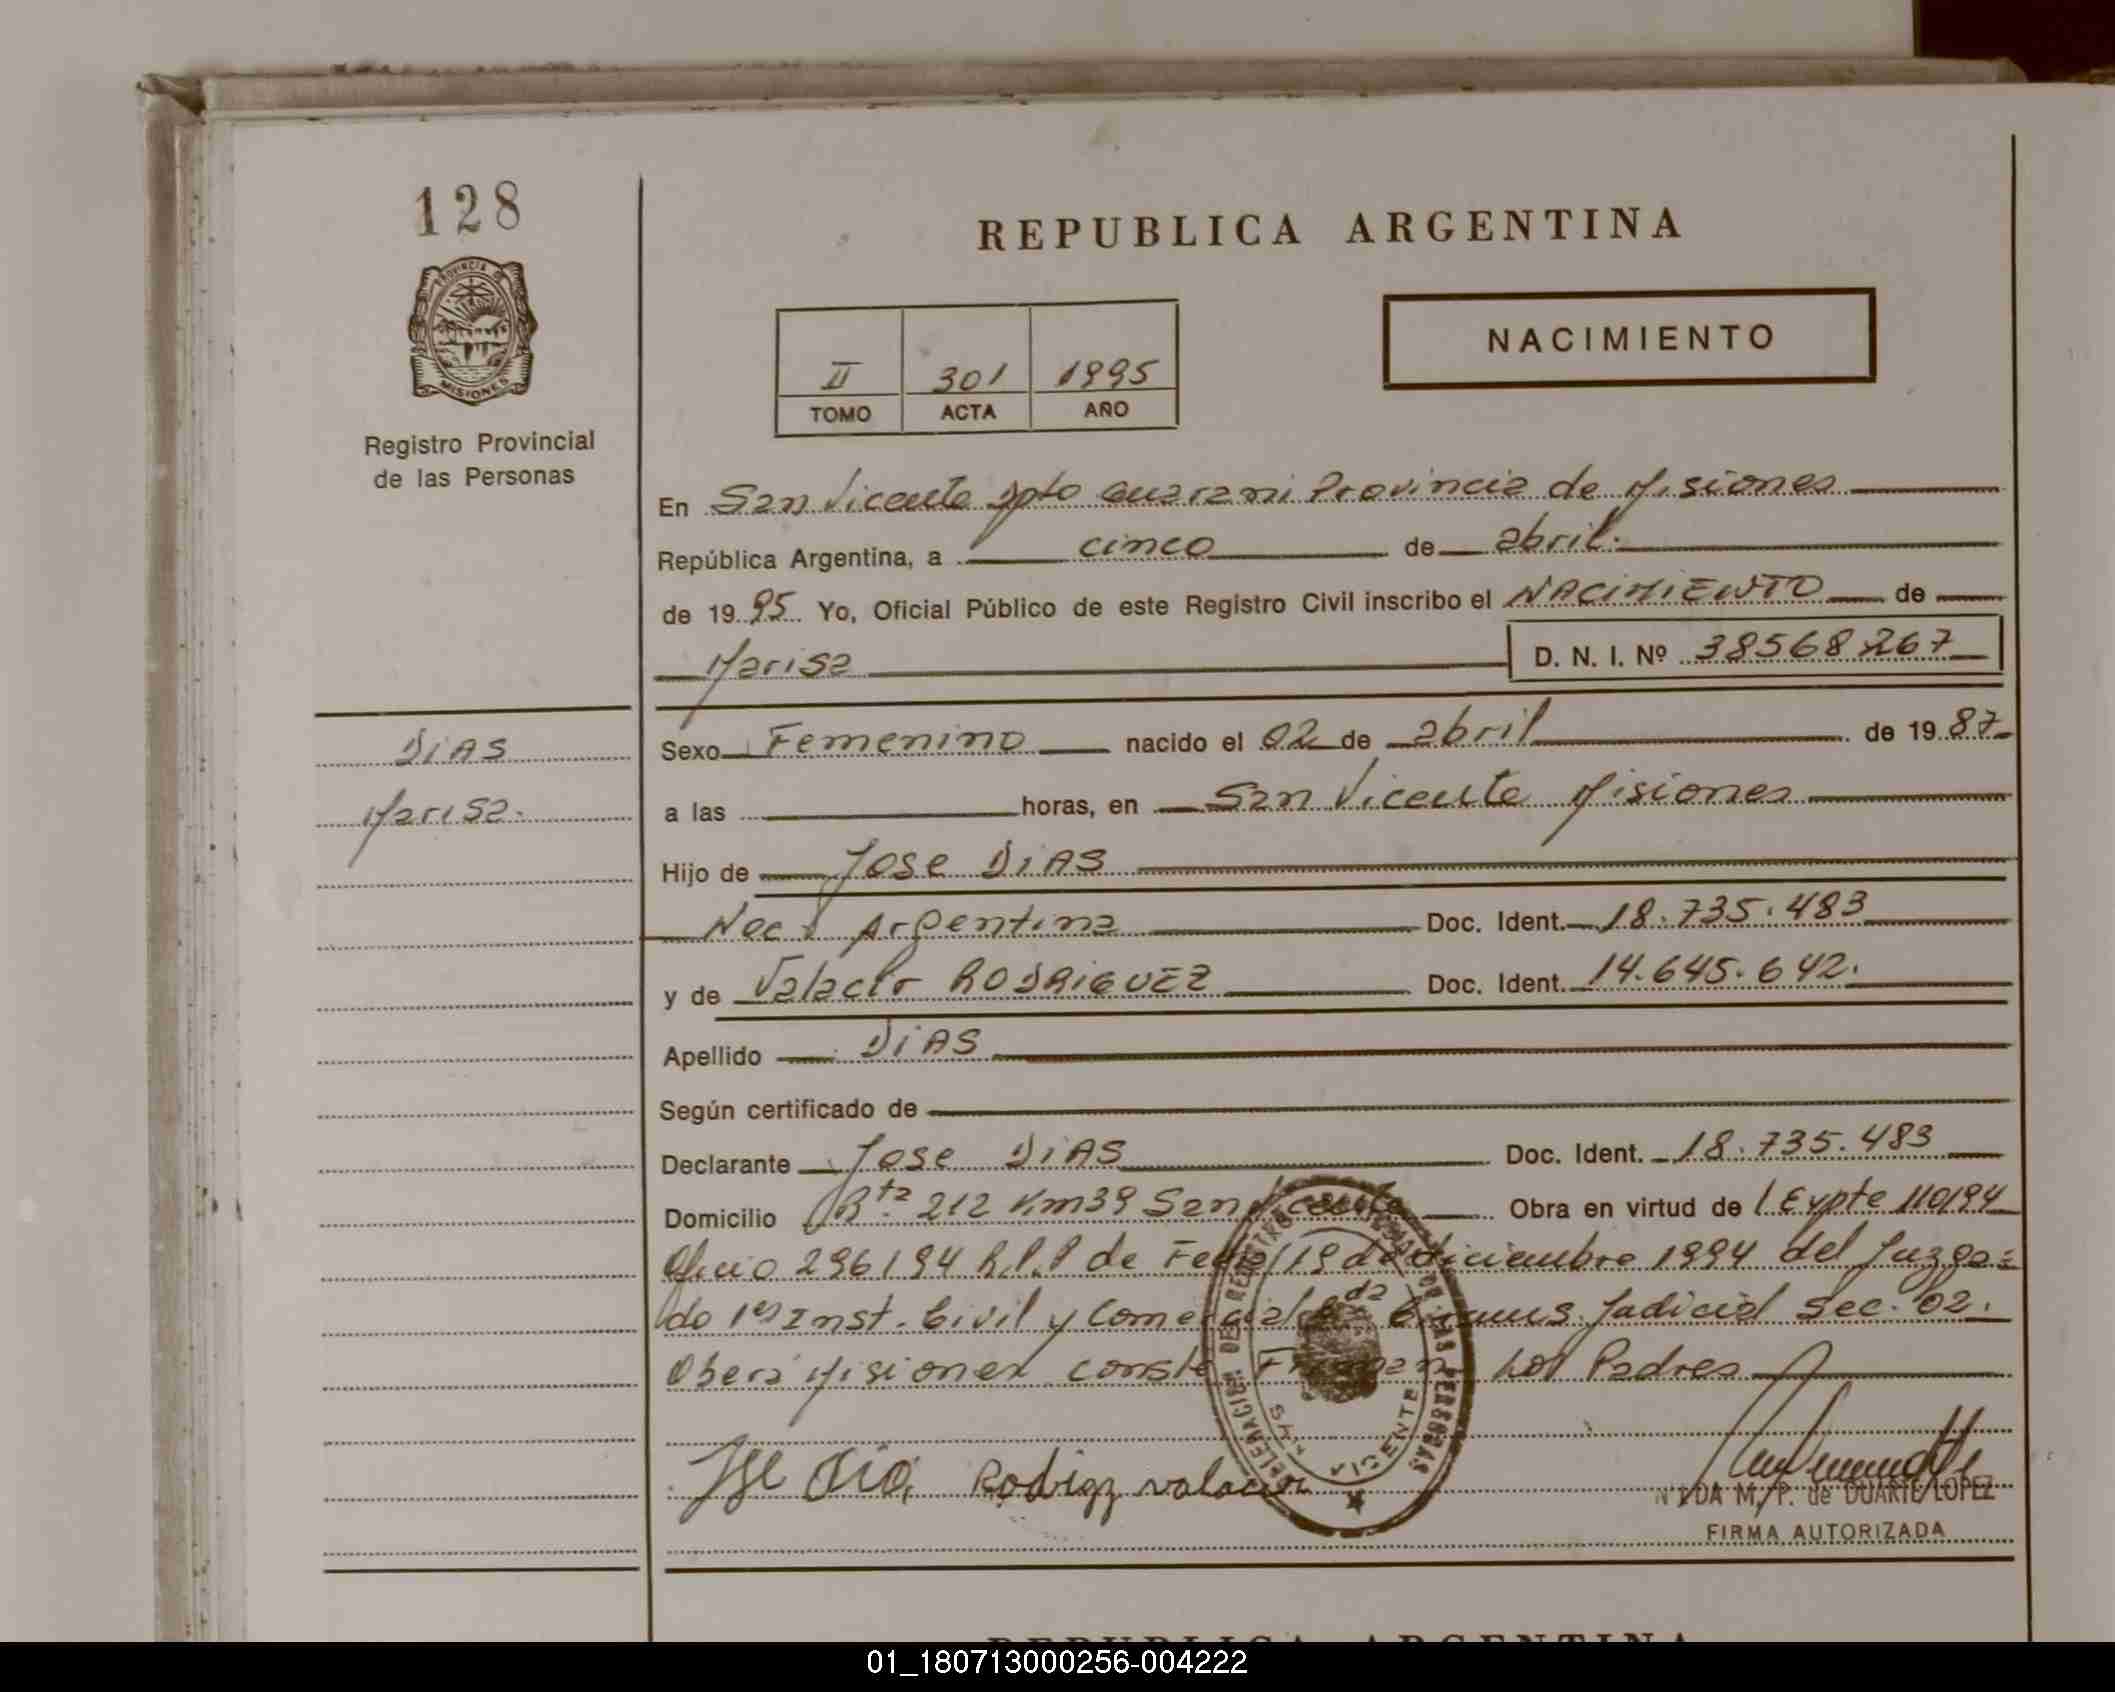 128
PROVINCIA DE
MISIONES
Registro Provincial
de las Personas
REPUBLICA ARGENTINA
NACIMIENTO
II 301 1995
TOMO ACTA AÑO
En San Vicente Dpto Guarani Provincia de Misiones
República Argentina, a cinco de abril.
de 1995 Yo, Oficial Público de este Registro Civil inscribo el NACIMIENTO de
Marisa D. N. I. Nº 38568267
DIAS
Marisa.
Sexo Femenino nacido el 02 de abril de 1987
a las horas, en San Vicente Misiones
Hijo de Jose DIAS
Nac. Argentina Doc. Ident. 18.735.483
y de Valacir RODRIGUEZ Doc. Ident. 14.645.642.
Apellido DIAS
Según certificado de
Declarante Jose DIAS Doc. Ident. 18.735.483
Domicilio Rta 212 Km39 San Vicente Obra en virtud de Expte 110/94
Oficio 296/94 R.P.P de Fecha 19 de diciembre 1994 del Juzga=
do 1º Inst. Civil y Comercial 2da Circuns. Judicial Sec. 02.
Obera Misiones conste Firman los Padres
Jose Dia, Rodigz valacir
DELEGACION DEL REGISTRO DE LAS PERSONAS
SAN VICENTE
M. P. de DUARTE LOPEZ
FIRMA AUTORIZADA
REPUBLICA ARGENTINA
01_180713000256-004222